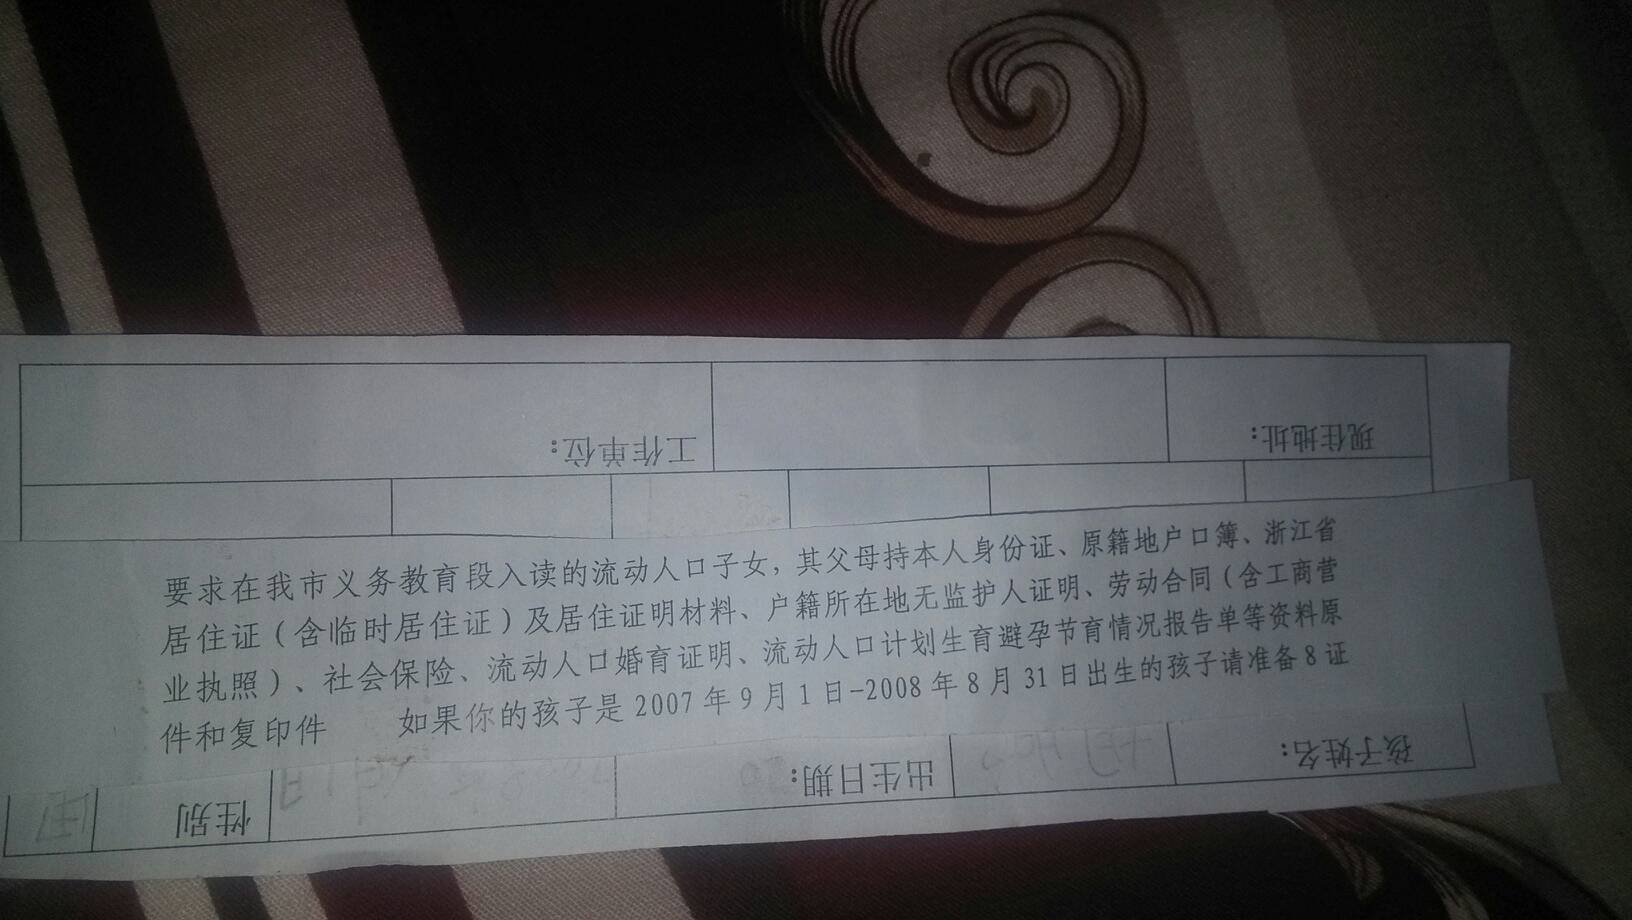 现住地址:
工作单位:
要求在我市义务教育段入读的流动人口子女，其父母持本人身份证、原籍地户口簿、浙江省
居住证（含临时居住证）及居住证明材料、户籍所在地无监护人证明、劳动合同（含工商营
业执照）、社会保险、流动人口婚育证明、流动人口计划生育避孕节育情况报告单等资料原
件和复印件 如果你的孩子是 2007 年 9 月 1 日-2008 年 8 月 31 日出生的孩子请准备 8 证
孩子姓名:
出生日期:
性别